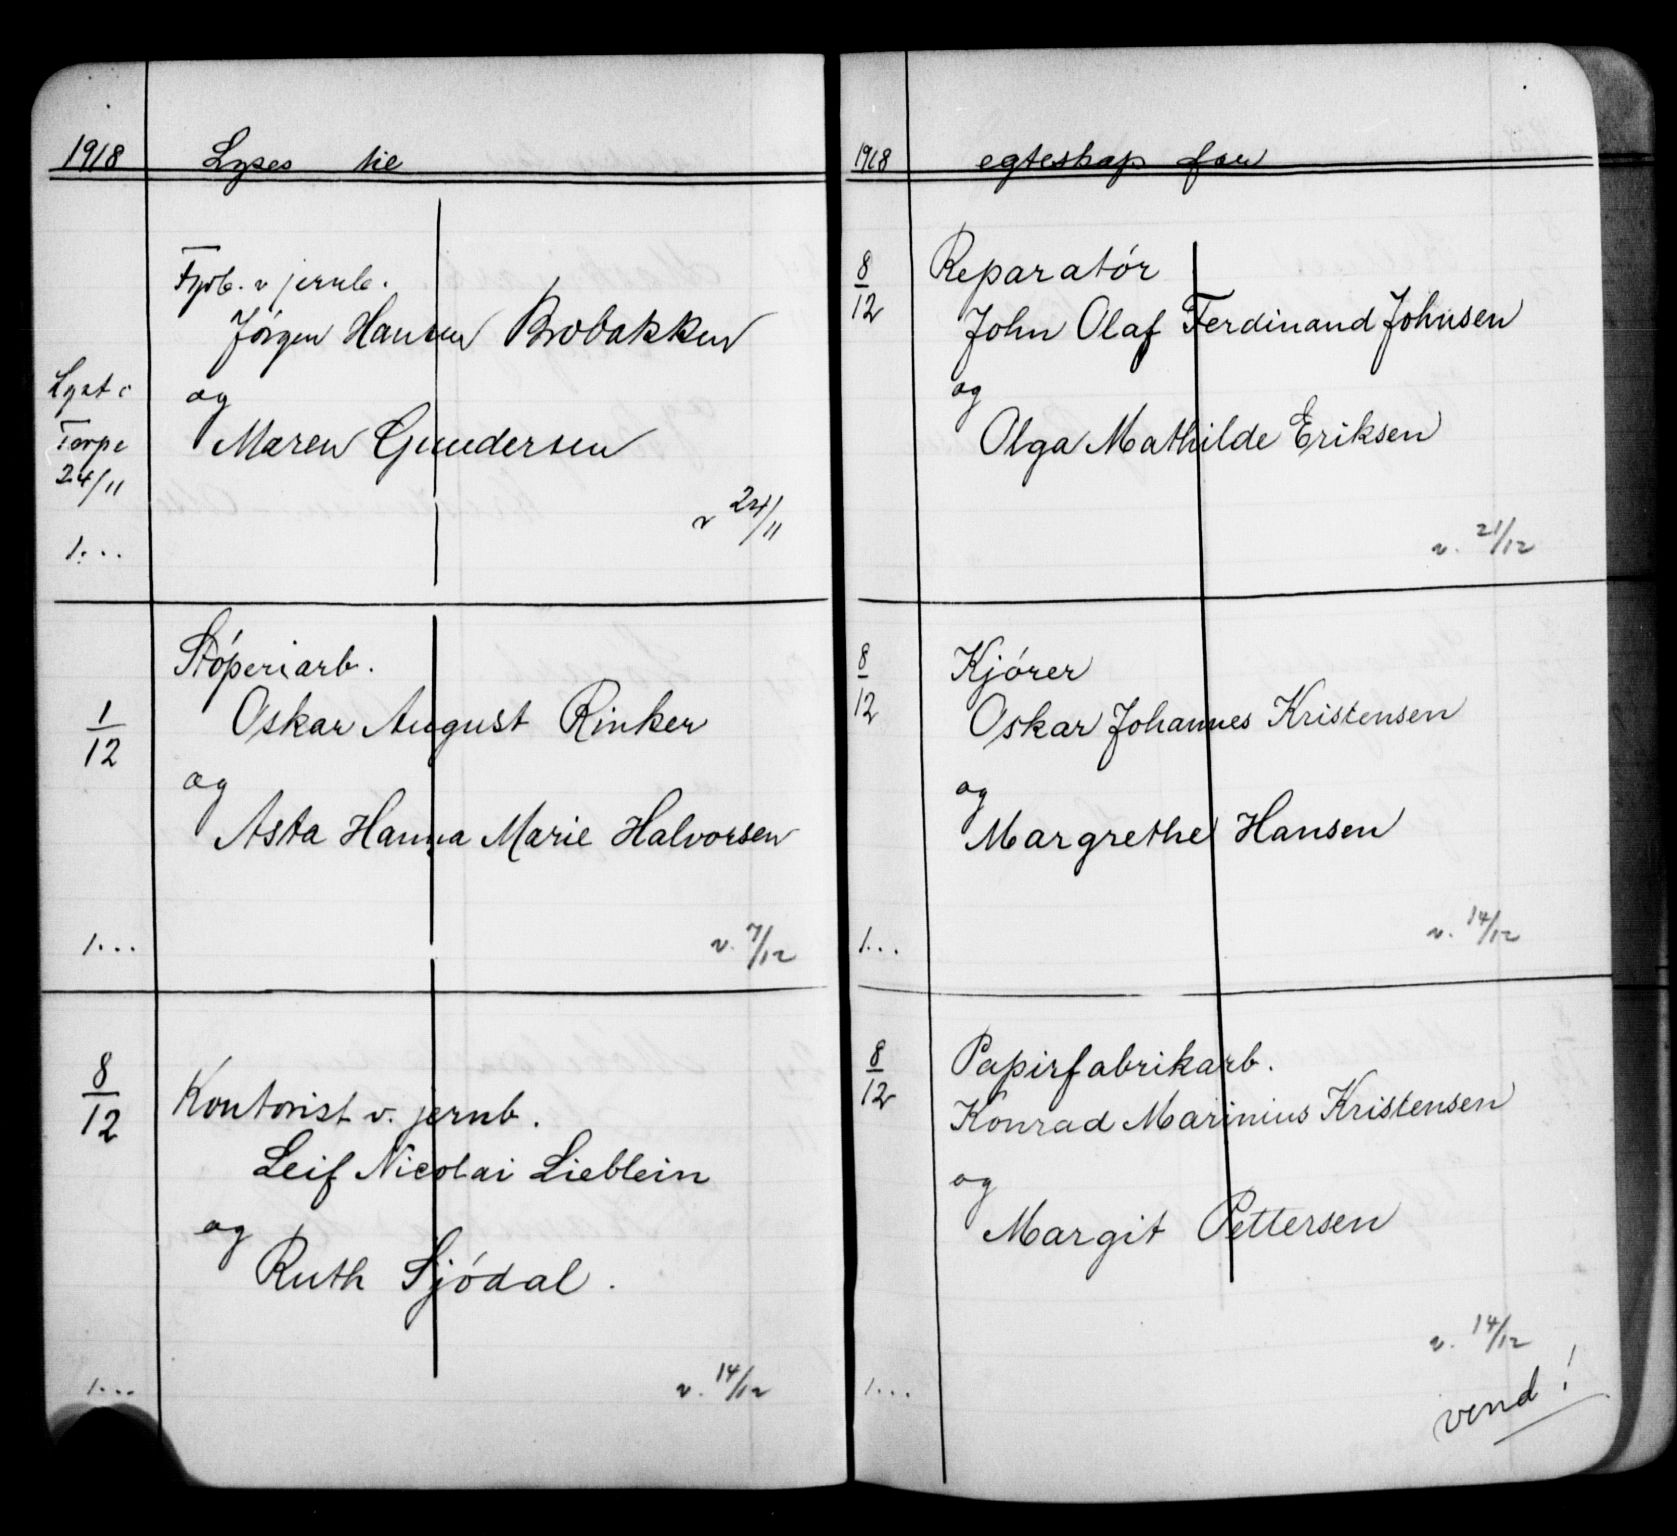 1918 Lyses til
Fyrb. v jernb.
Jörgen Hansen Brobakken
Lyst i
og
Torpe
Maren Gundersen
24/11
v 24/11
1...
Stóperiarb.
1/12
Oskar August Rinker
og
Asta Hanna Marie Halvorsen
1... v. 7/12
8/12
Kontorist v. jernb.
Leif Nicolai Lieblein
og
Ruth Sjódal.
1... v. 14/12
1918 egteskap for
8/12 Reparatór
John Olaf Ferdinand Johnsen
og
Olga Mathilde Eriksen
v. 21/12
8/12 Kjórer
Oskar Johannes Kristensen
og
Margrethe Hansen
1... v. 14/12
8/12 Papirfabrikarb.
Konrad Marinius Kristensen
og
Margit Pettersen
v. 14/12
1... vend!